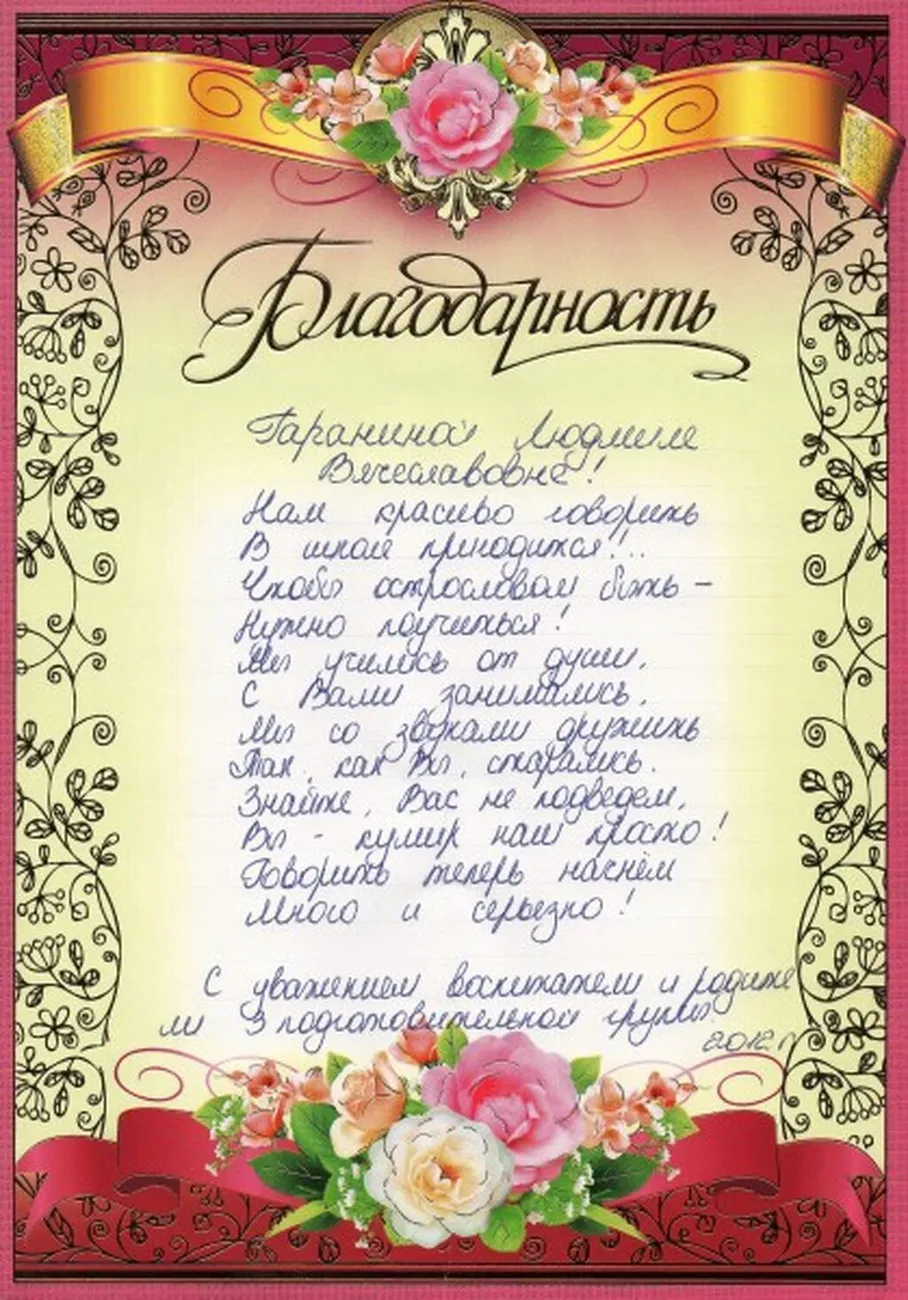 Благодарность
Гараниной Людмиле
Вячеславовне!
Нам красиво говорить
В школе пригодится!..
Чтобы острословом быть –
Нужно поучиться!
Мы учились от души,
С Вами занимались,
Мы со звуками дружить
Так, как Вы, старались.
Знайте, Вас не подведем,
Вы - кумир наш просто!
Говорить теперь начнём
Много и серьезно!
С уважением воспитатели и родите
ли 3 подготовительной группы.
2012 г